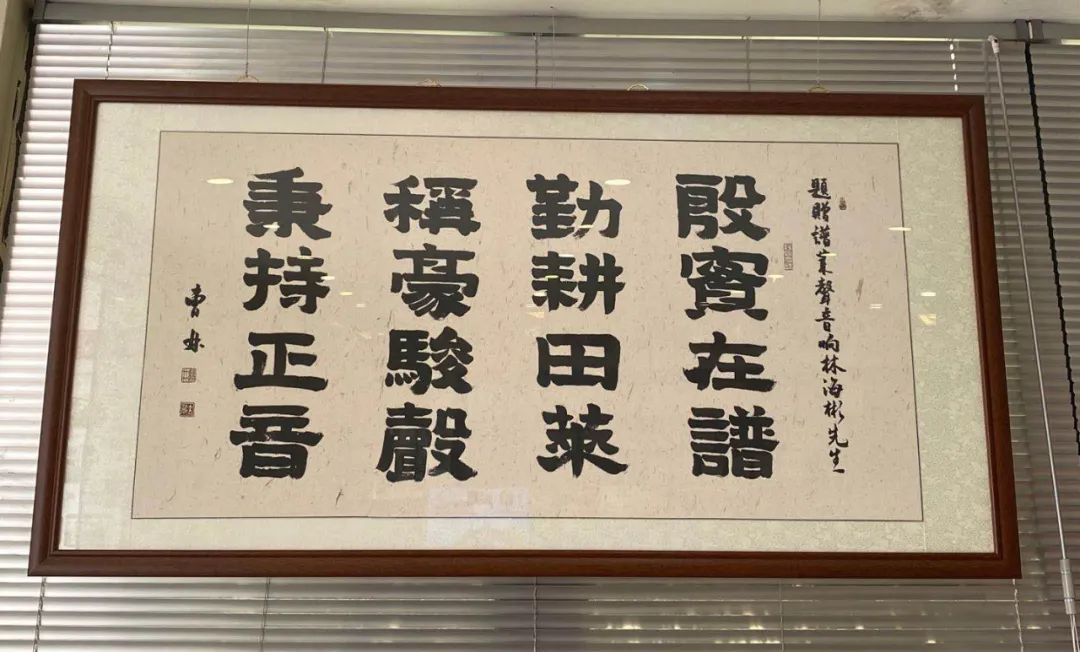 題贈譜萊聲音响林海彬先生
殷實在譜
勤耕田萊
稱豪駿聲
秉持正音
曹